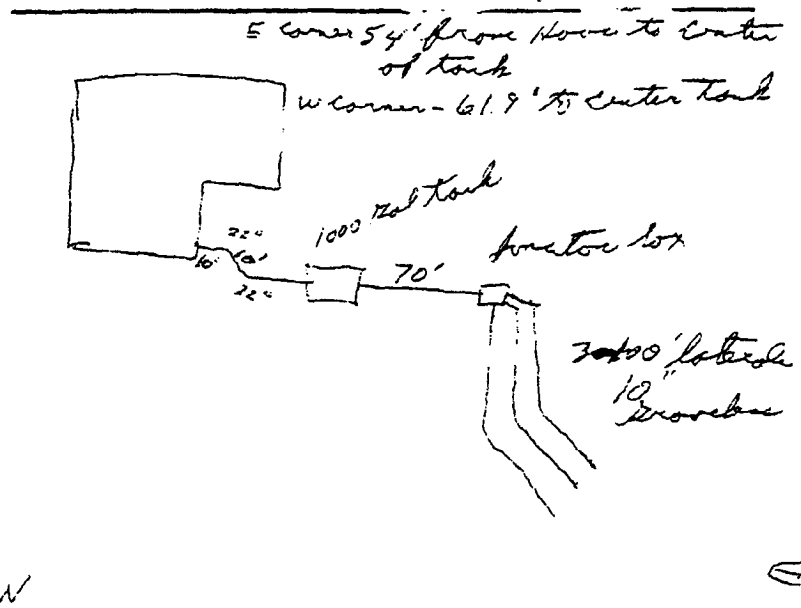 E Corner 54' from House to Center
of tank
W Corner - 61.9' to Center Tank
1000 Gal tank
22°
10' 10'
22°
70'
Junction Box
3-100' laterals
10"
Gravelless
W